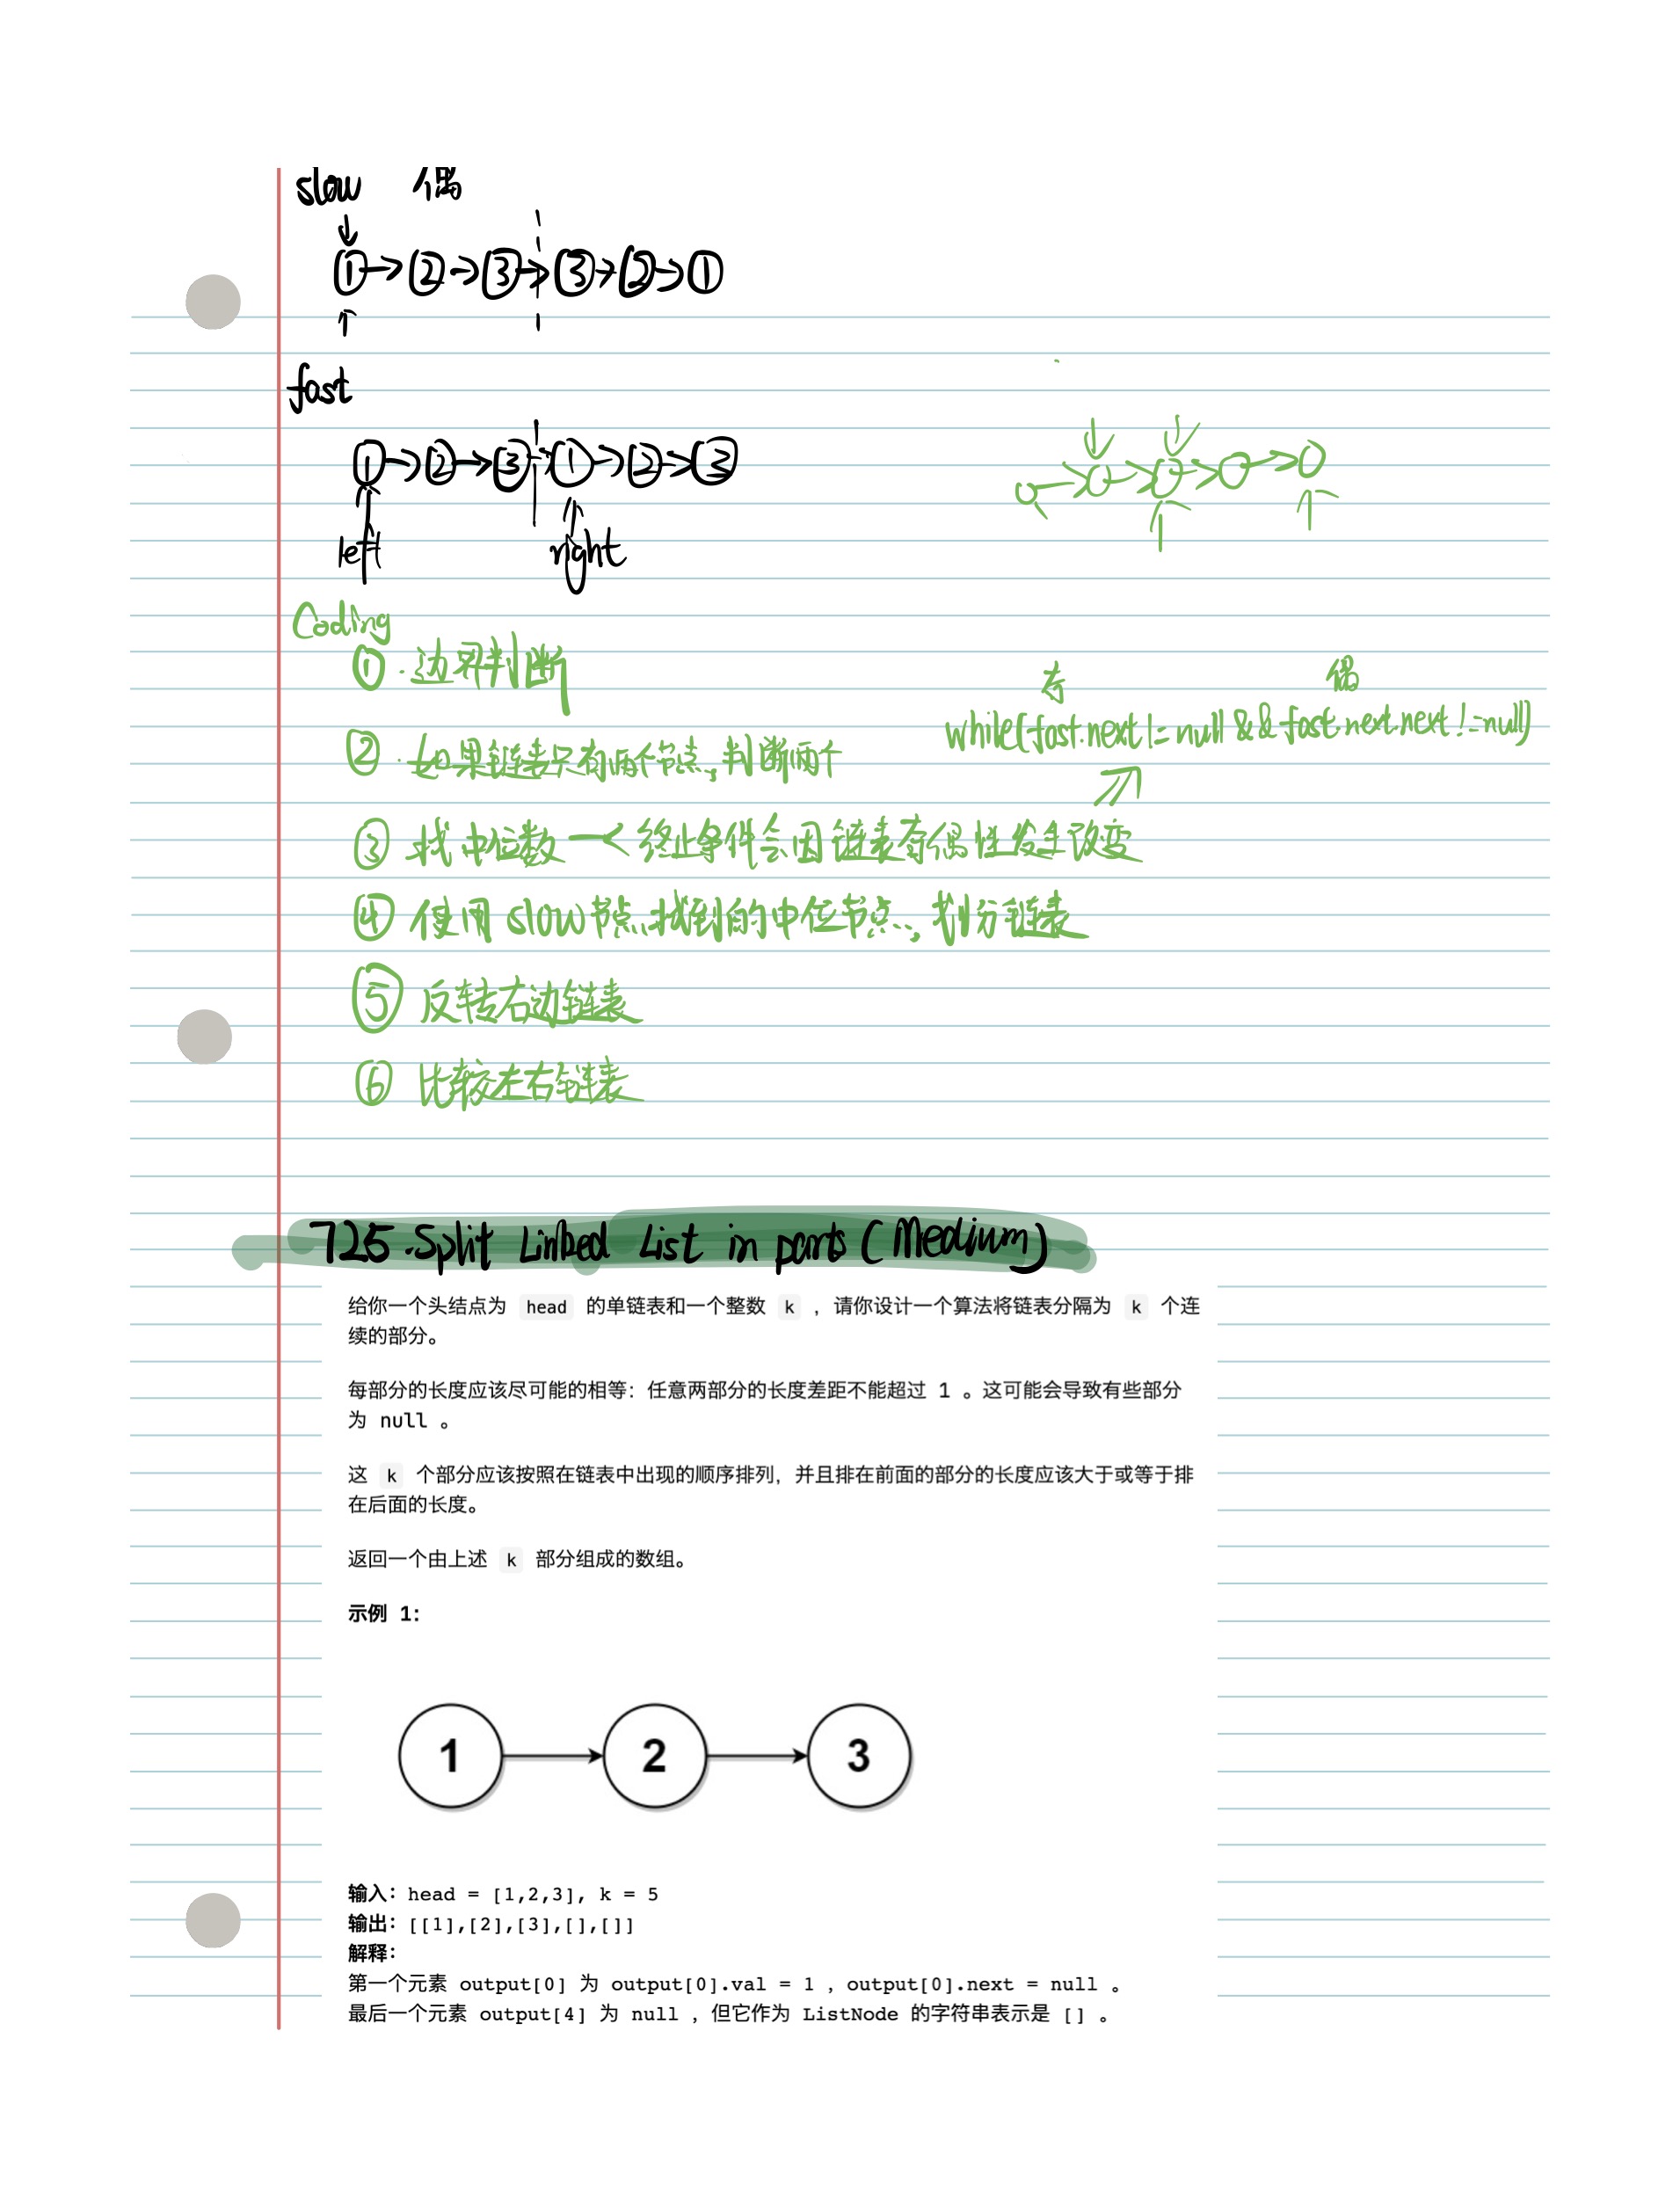 slow 偶
①→②→③→③→②→①
fast
①→②→③→①→②→③
left right
Coding
①.边界判断
奇 偶
while(fast.next!=null && fast.next.next!=null)
②.如果链表只有两个节点,判断两个
③ 找中位数 —< 终止条件会因链表奇偶性发生改变
④ 使用slow节点找到的中位节点,划分链表
⑤ 反转右边链表
⑥ 比较左右链表
725.Split Linked List in parts (Medium)
给你一个头结点为 head 的单链表和一个整数 k ，请你设计一个算法将链表分隔为 k 个连
续的部分。
每部分的长度应该尽可能的相等：任意两部分的长度差距不能超过 1 。这可能会导致有些部分
为 null 。
这 k 个部分应该按照在链表中出现的顺序排列，并且排在前面的部分的长度应该大于或等于排
在后面的长度。
返回一个由上述 k 部分组成的数组。
示例 1：
1 2 3
输入：head = [1,2,3], k = 5
输出：[[1],[2],[3],[],[]]
解释：
第一个元素 output[0] 为 output[0].val = 1 ，output[0].next = null 。
最后一个元素 output[4] 为 null ，但它作为 ListNode 的字符串表示是 [] 。